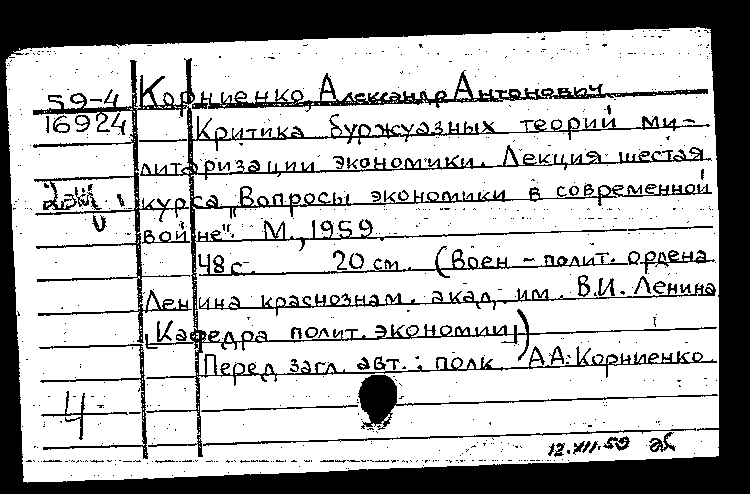 59-4 Корниенко, Александр Антонович
16924 Критика буржуазных теорий ми-
литаризации экономики. Лекция шестая
курса "Вопросы экономики в современной
войне". М., 1959.
48 с. 20 см. (Воен-полит. ордена
Ленина краснознам. акад. им. В.И. Ленина
[Кафедра полит. экономии])
Перед загл. авт.: полк. А.А. Корниенко
4
12.XII.59